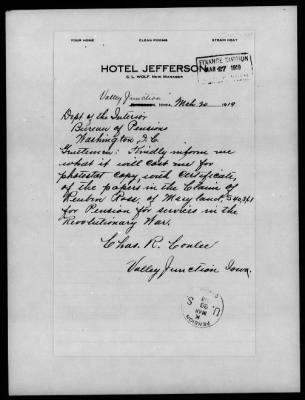 YOUR HOME CLEAN ROOMS STEAM HEAT
HOTEL JEFFERSON
C. L. WOLF, NEW MANAGER
FINANCE DIVISION
MAR 27 1919
Valley Junction, IOWA, Mch 20 1919
Dept of the Interior
Bureau of Pensions
Washington, D.C.
Gentlemen: Kindly inform me
what it will cost me for
photostat copy, with certificate,
of the papers in the Claim of
Reubin Rose, of Maryland,
for Pension for services in the
Revolutionary War.
Chas. R. Conlee
Valley Junction Iowa.
PENSION
MAR
U. S.